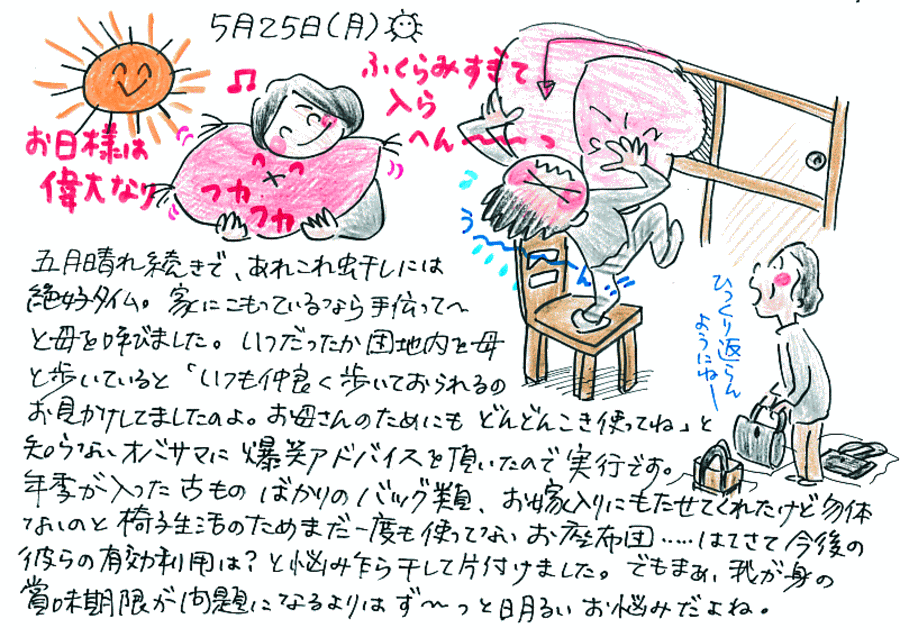 5月25日(月)
お日様は
偉大なり
フカ
フカ
ふくらみすぎて
入ら
へん〜〜っ
う〜〜ん
ひっくり返らん
ようにねー
五月晴れ続きで、あれこれ虫干しには
絶好タイム。家にこもっているなら手伝って〜
と母を呼びました。いつだったか団地内を母
と歩いていると「いつも仲良く歩いておられるの
お見かけしてましたのよ。お母さんのためにも どんどんこき使ってね」と
知らないオバサマに爆笑アドバイスを頂いたので実行です。
年季が入った古ものばかりのバッグ類、お嫁入りにもたせてくれたけど勿体
ないのと椅子生活のためまだ一度も使ってないお座布団……はてさて今後の
彼らの有効利用は?と悩み乍ら干して片付けました。でもまぁ、我が身の
賞味期限が問題になるよりはず〜っと明るいお悩みだよね。